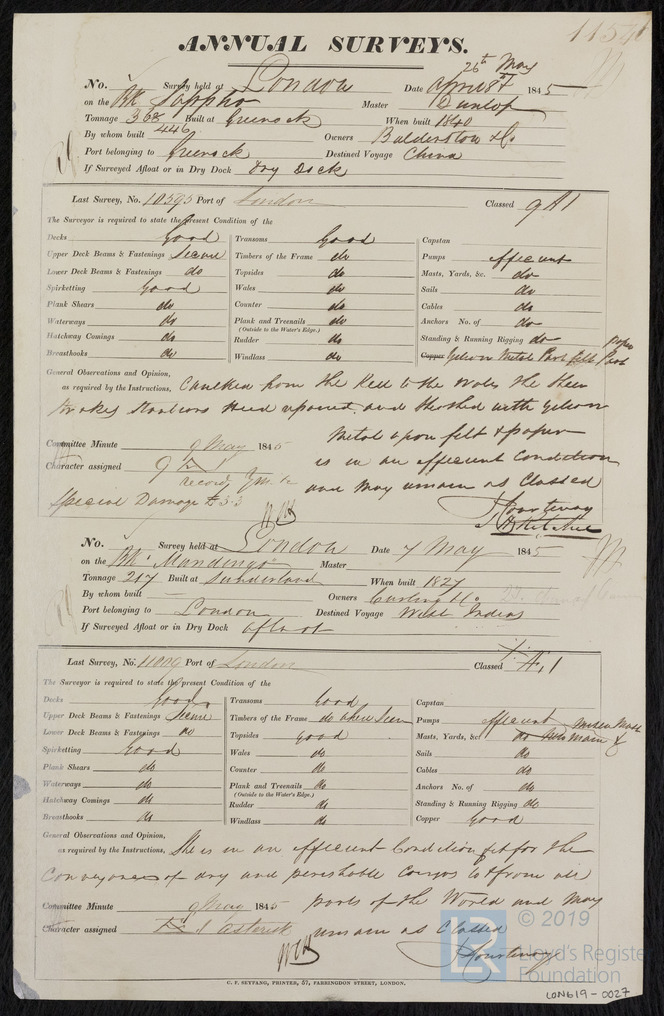 11591
ANNUAL SURVEYS.
26th May
No. Survey held at London Date April 8th 1845
on the Bk Sappho Master Dunlop
Tonnage 368 Built at Greenock When built 1840
446
By whom built Owners Balderston & Co
Port belonging to Greenock Destined Voyage China
If Surveyed Afloat or in Dry Dock Dry Dock
Last Survey, No. 10595 Port of London Classed 9A1
The Surveyor is required to state the present Condition of the
Decks Good Transoms Good Capstan
Upper Deck Beams & Fastenings Secure Timbers of the Frame do Pumps efficient
Lower Deck Beams & Fastenings do Topsides do Masts, Yards, &c. do
Spirketting Good Wales do Sails do
Plank Shears do Counter do Cables do
Waterways do Plank and Treenails do Anchors No. of do
(Outside to the Water's Edge.)
Hatchway Comings do Rudder do Standing & Running Rigging do
Breasthooks do Windlass do Copper Yellow Metal Part felt Part paper
General Observations and Opinion,
as required by the Instructions, Caulked from the Keel to the Wales the Sheer
Strakes Stantions Hood upward and sheathed with yellow
Metal upon felt & paper
Committee Minute 9 May 1845
is in an efficient Condition
Character assigned 9 A 1
and may remain as Classed
Special Damage £3.3
J Courtenay
No. Survey held at London Date 7 May 1845
on the Bk "Mandingo" Master
Tonnage 217 Built at Sunderland When built 1827
By whom built Owners Curling & Co
Port belonging to London Destined Voyage West Indies
If Surveyed Afloat or in Dry Dock afloat
Last Survey, No. 11009 Port of London Classed Æ1
The Surveyor is required to state the present Condition of the
Decks Good Transoms Good Capstan
Upper Deck Beams & Fastenings Secure Timbers of the Frame do where seen Pumps efficient
Lower Deck Beams & Fastenings do Topsides Good Masts, Yards, &c do
Spirketting Good Wales do Sails do
Plank Shears do Counter do Cables do
Waterways do Plank and Treenails do Anchors No. of do
(Outside to the Water's Edge.)
Hatchway Comings do Rudder do Standing & Running Rigging do
Breasthooks do Windlass do Copper Good
General Observations and Opinion,
as required by the Instructions, She is in an efficient Condition fit for the
Conveyance of dry and perishable Cargos to & from all
Committee Minute 9 May 1845 parts of the World and May
Character assigned Æ 1 asterisk remain as Classed
J Courtenay
C. F. SEYFANG, PRINTER, 57, FARRINGDON STREET, LONDON.
LR © 2019
Lloyd's Register
Foundation
LON619-0027